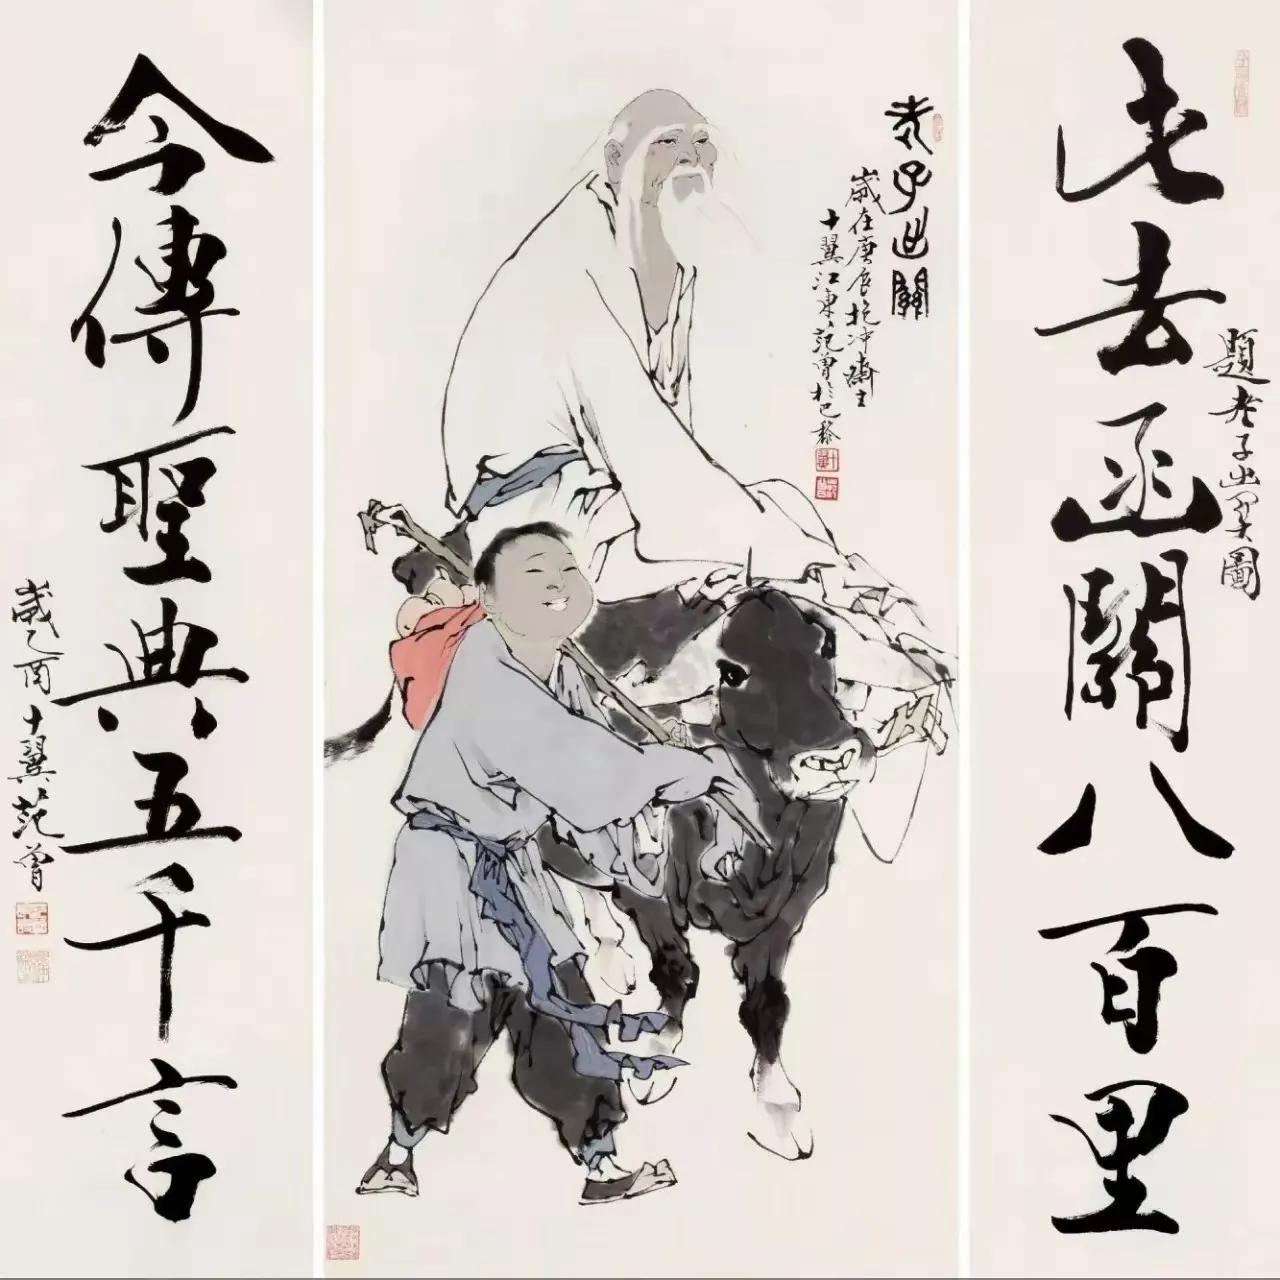 題老子出關圖
此去函關八百里
老子出關
歲在庚辰抱冲齋主
十翼江東范曾於巴黎
今傳聖典五千言
歲乙酉十翼范曾